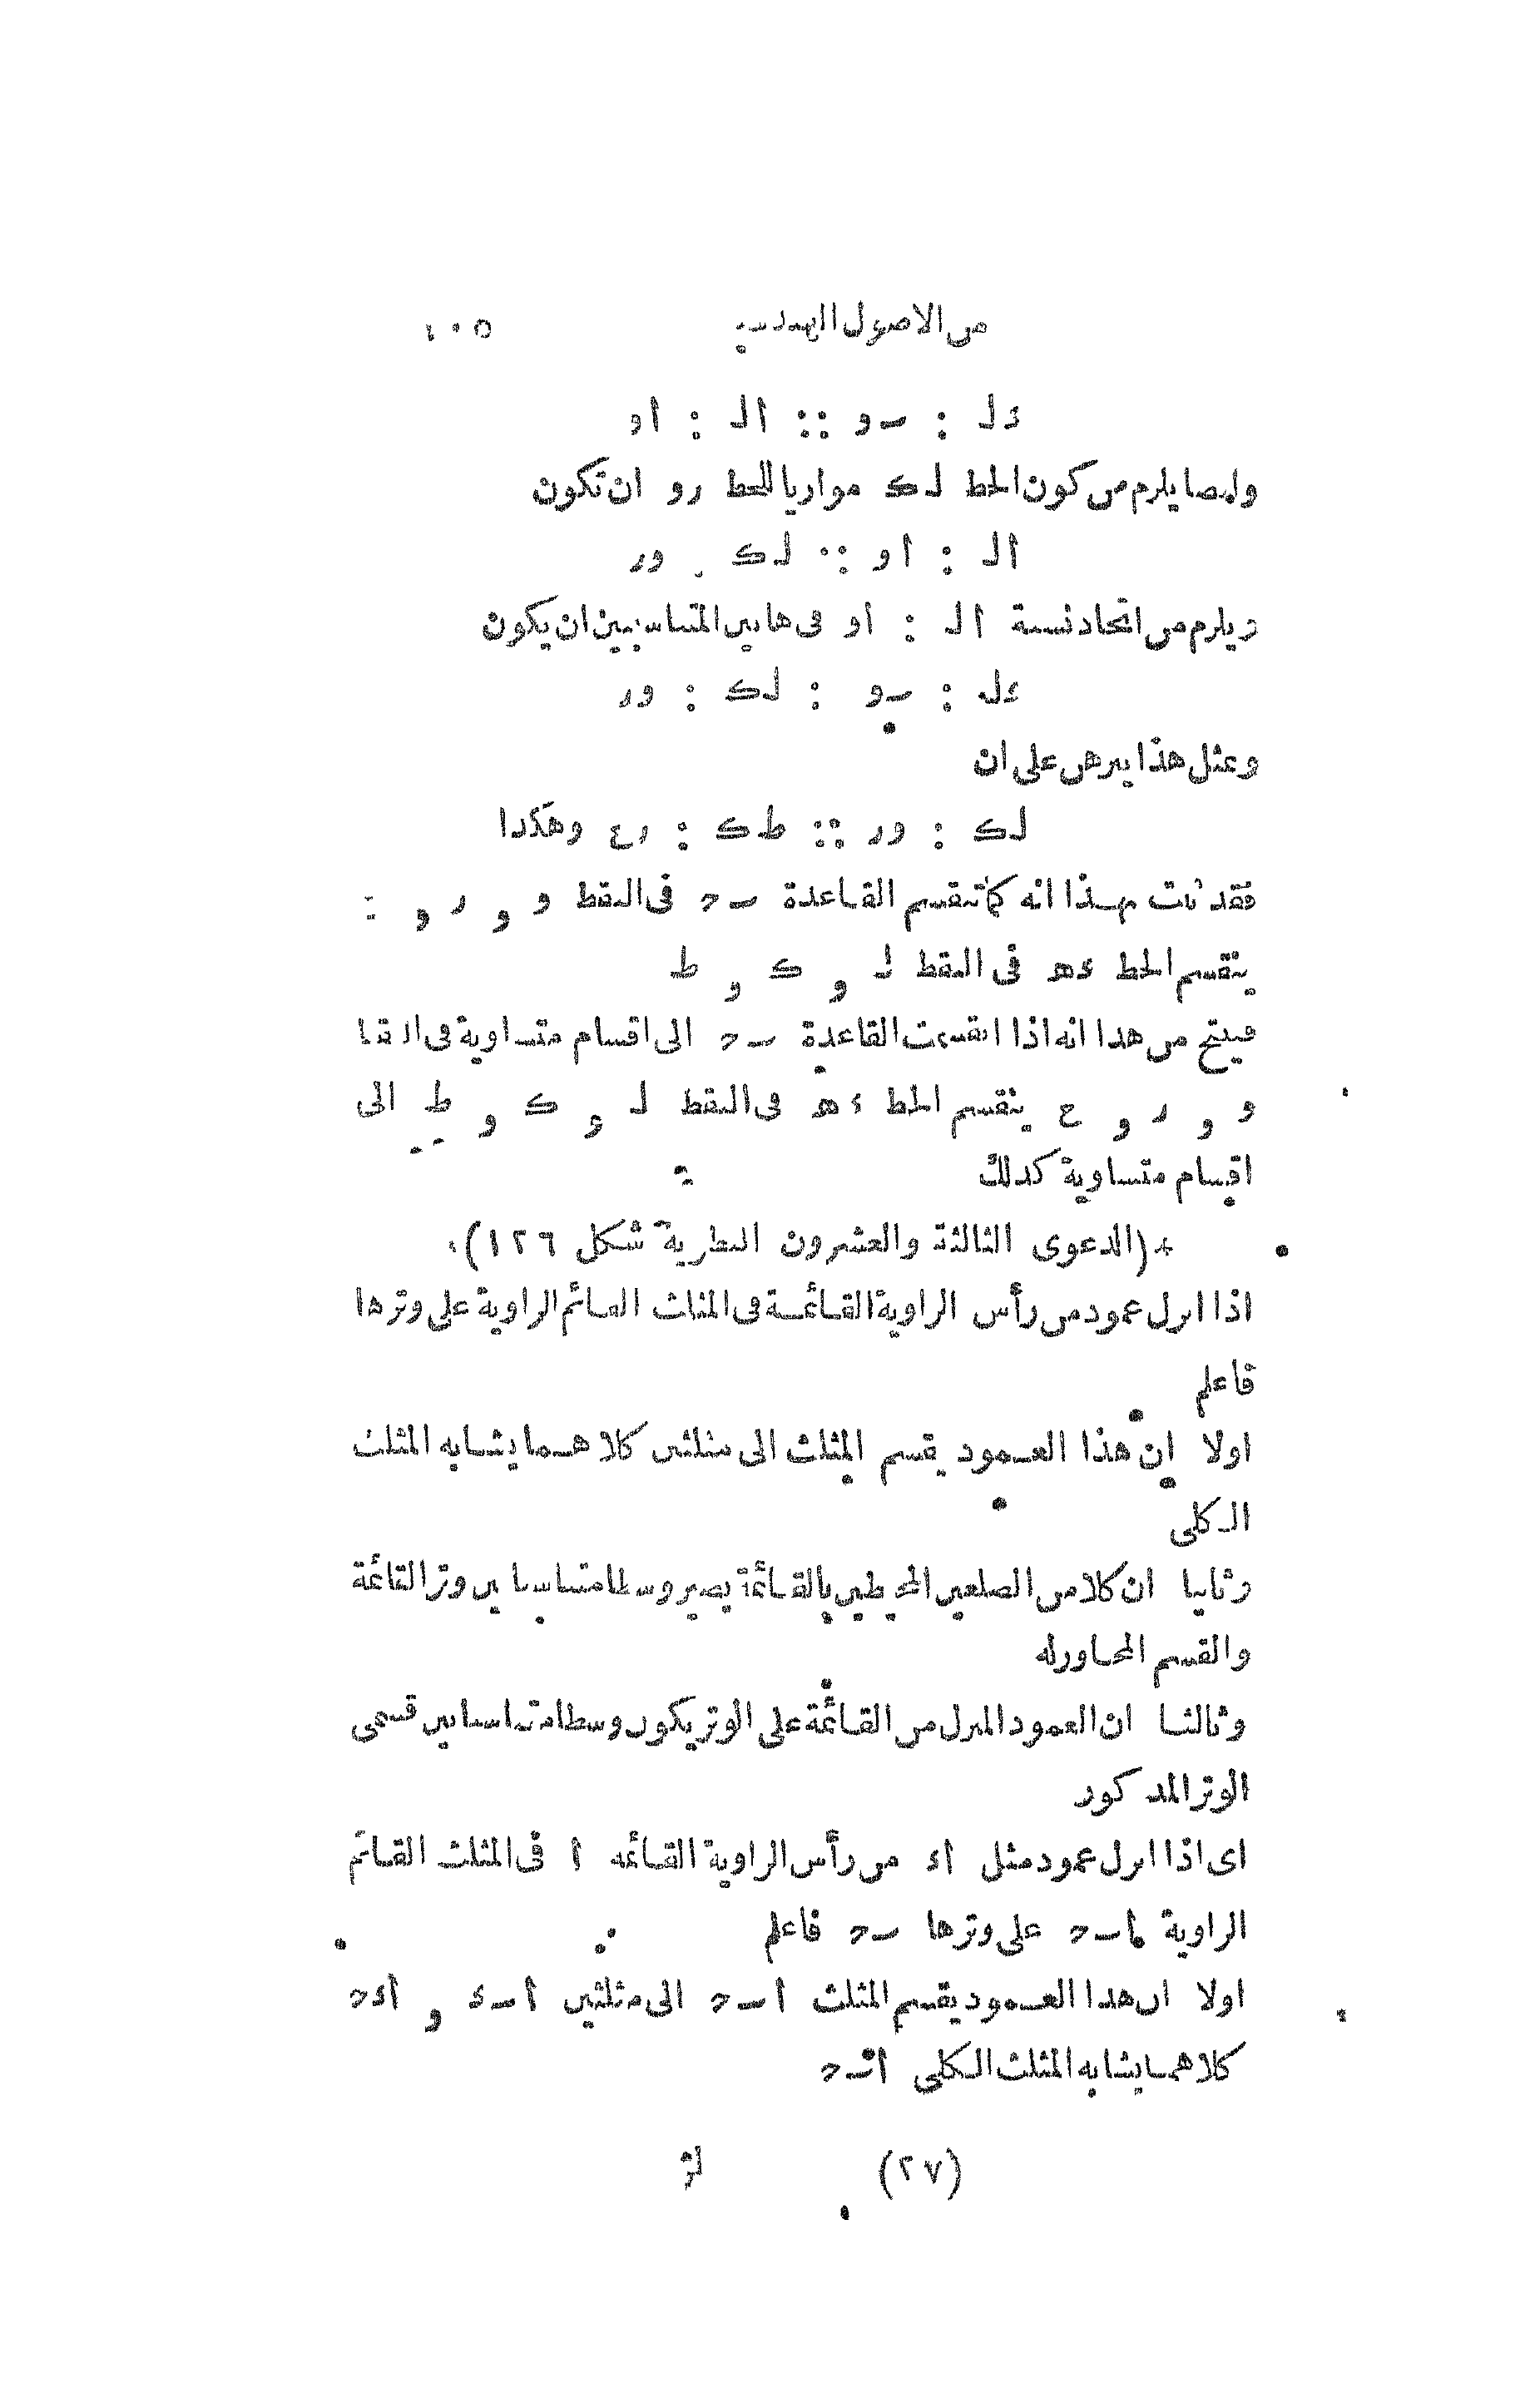 من الاصول الهندسية ١٠٥
ءل : ـو :: ال : او
وايضا يلزم من كون الخط لك موازيا للخط رو ان تكون
ال : او :: لك : ور
ويلزم من اتحاد نسبة ال : او فى هاتين المتناسبتين ان يكون
ءل : ـو : لك : ور
وبمثل هذا يبرهن على ان
لك : ور :: طك : رع وهكذا
فقد ثبت بهـذا انه كما تنقسم القـاعدة ـح فى النقط و و ر و
ينقسم الخط ءه فى النقط ل و ك و ط
فينتج من هذا انه اذا انقسمت القاعدة ـح الى اقسام متساوية فى النقط
و و ر و ع ينقسم الخط ءه فى النقط ل و ك و ط الى
اقسام متساوية كذلك
(الدعوى الثالثة والعشرون النظرية شكل ١٢٦)
اذا انزل عمود من رأس الزاوية القـائمـة فى المثلث القـائم الزاوية على وترها
فاعلم
اولا ان هذا العـمود يقسم المثلث الى مثلثين كلاهـما يشـابه المثلث
الـكلى
وثانيا ان كلا من الضلعين المحيطين بالقـائمة يصير وسطا متناسبا بين وتر القائمة
والقسم المجـاور له
وثالثـا ان العمود المنزل من القـائمة على الوتر يكون وسطا متناسبا بين قسمى
الوتر المذكور
اى اذا انزل عمود مثل اء من رأس الزاوية القـائمه ا فى المثلث القـائم
الزاوية اـح على وترها ـح فاعلم
اولا ان هذا العـمود يقسم المثلث اـح الى مثلثين اـء و اءح
كلاهمـا يشـابه المثلث الـكلى اـح
(٢٧) لژ